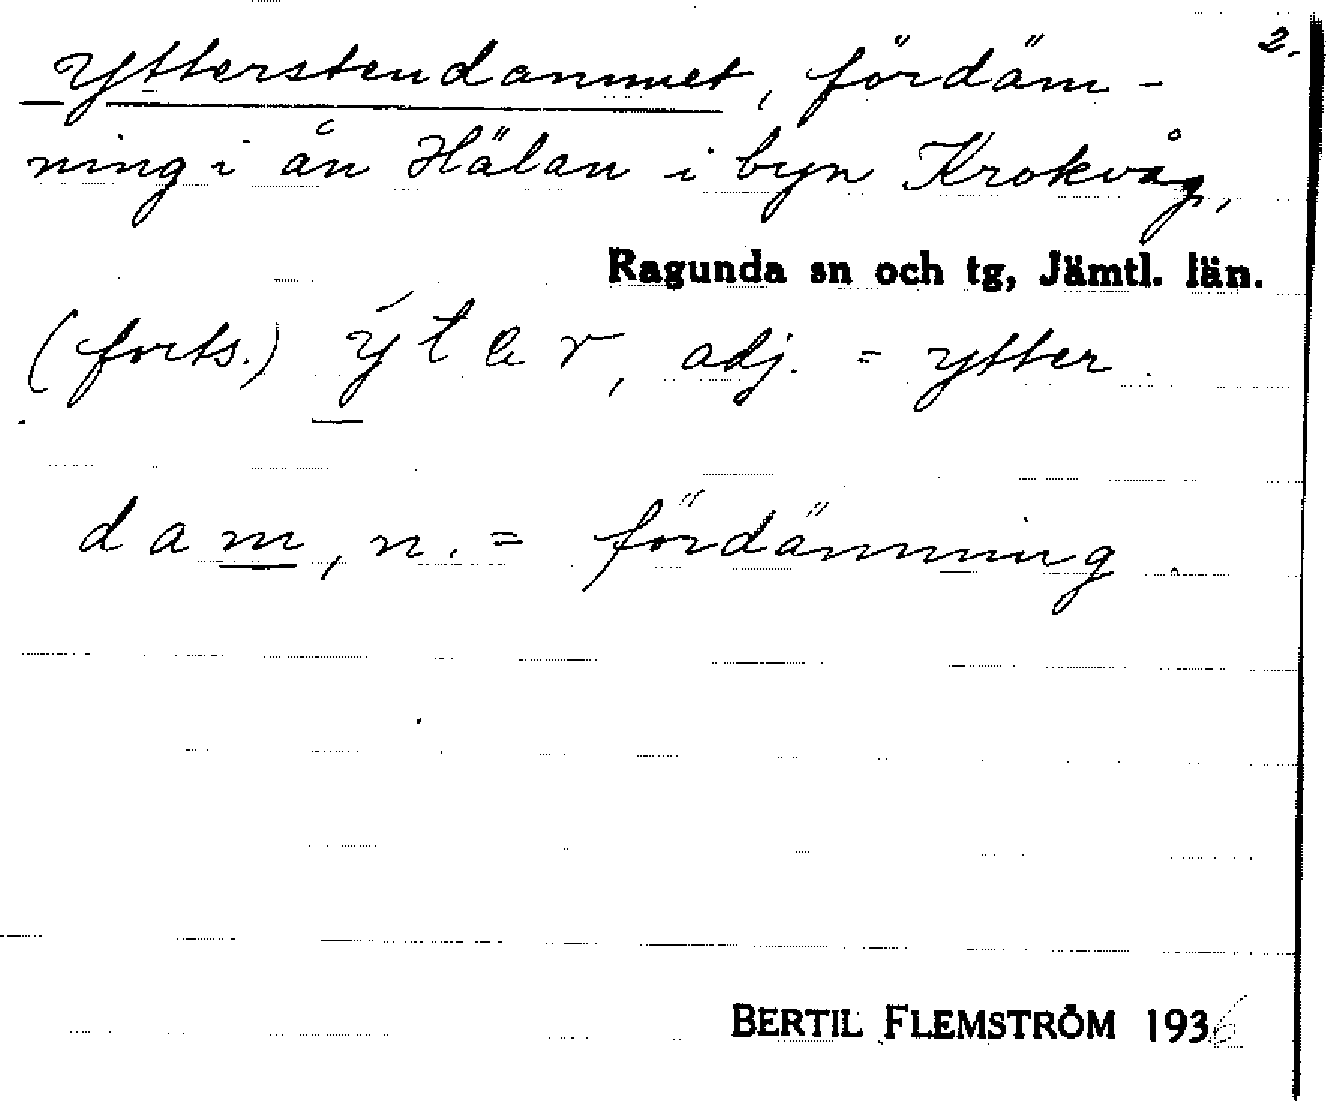 2.
Ytterstendammet, fördäm-
ning i ån Hälan i byn Krokvåg,
Ragunda sn och tg, Jämtl. län.
(forts.) ýter, adj. = ytter.
dam, n. = fördämning.
BERTIL FLEMSTRÖM 1936